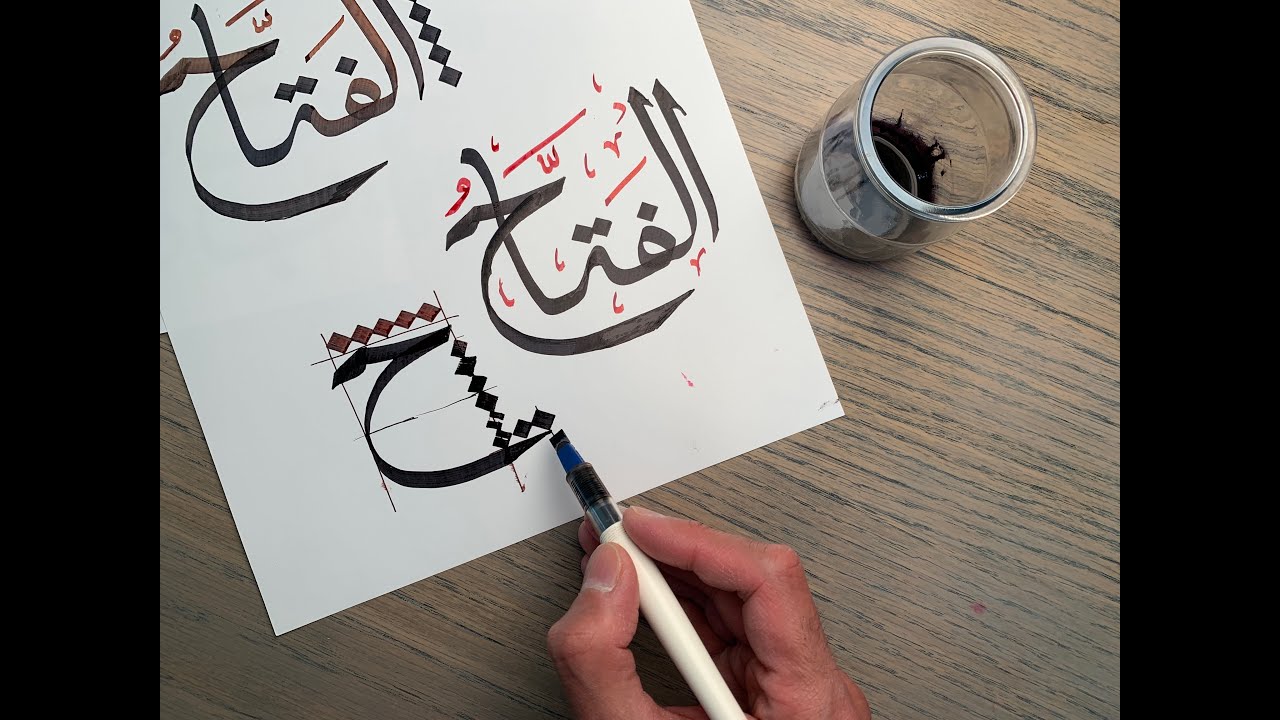 الفتاح
الفَتَّاحُ
ح